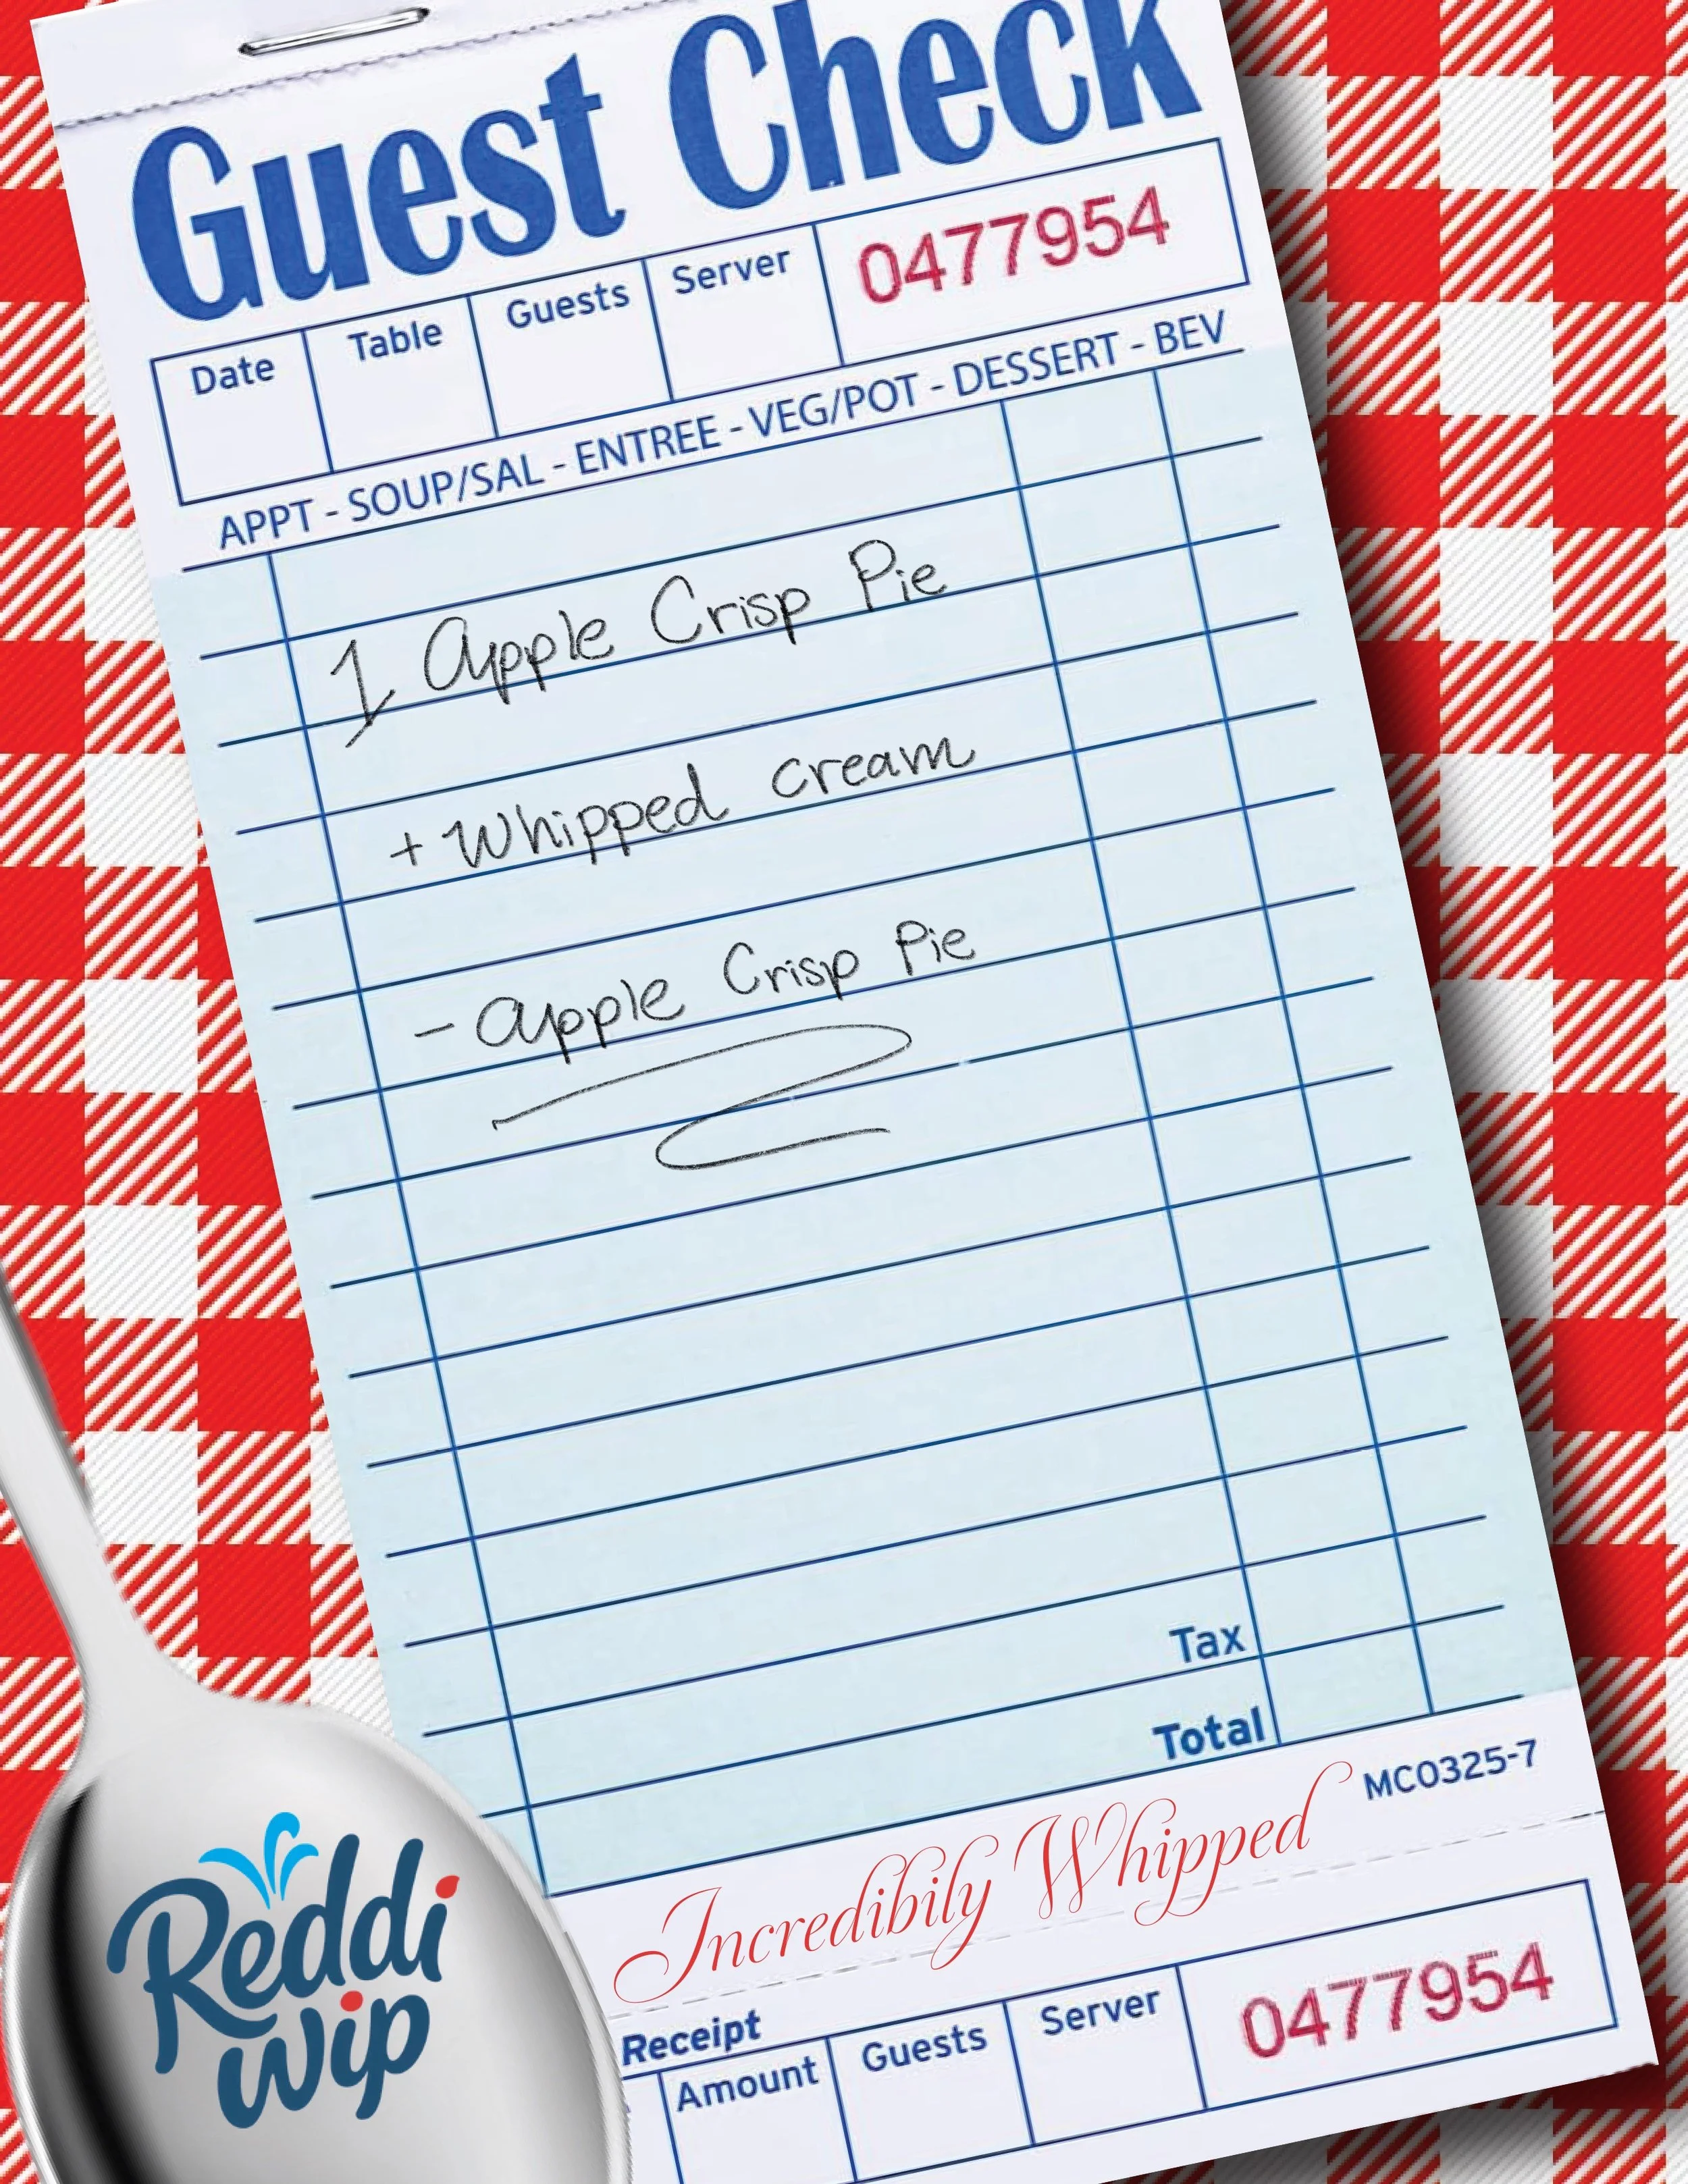 Guest Check
Date Table Guests Server 0477954
APPT - SOUP/SAL - ENTREE - VEG/POT - DESSERT - BEV
1 Apple Crisp Pie
+ Whipped cream
- Apple Crisp Pie
Tax
Total
MC0325-7
Incredibily Whipped
Receipt
Amount Guests Server 0477954
Reddi
wip